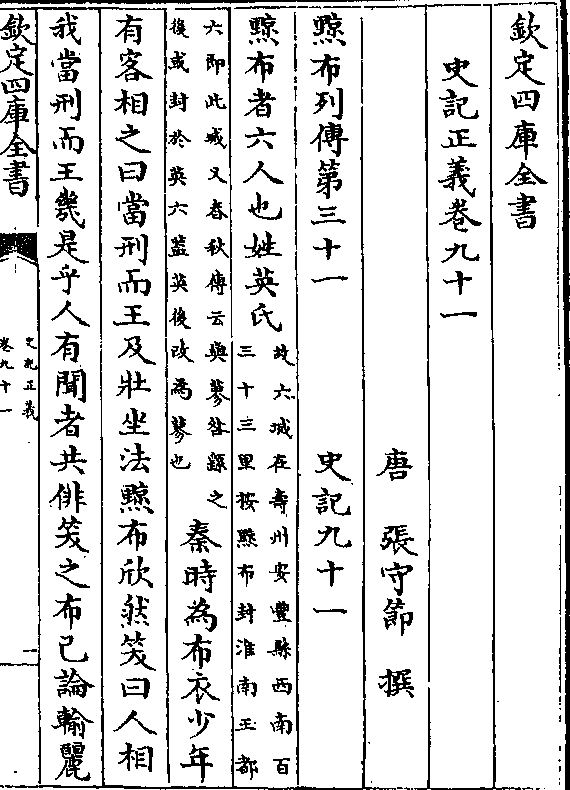 欽定四庫全書
史記正義卷九十一
唐 張守節 撰
黥布列傳第三十一 史記九十一
黥布者六人也姓英氏
故六城在壽州安豐縣西南百
三十三里按黥布封淮南王都
六即此城又春秋傳云與蓼咎繇之
後或封於英六蓋英後改為蓼也
秦時為布衣少年
有客相之曰當刑而王及壯坐法黥布欣然笑曰人相
我當刑而王幾是乎人有聞者共俳笑之布已論輸麗
欽定四庫全書
史記正義
卷九十一
一